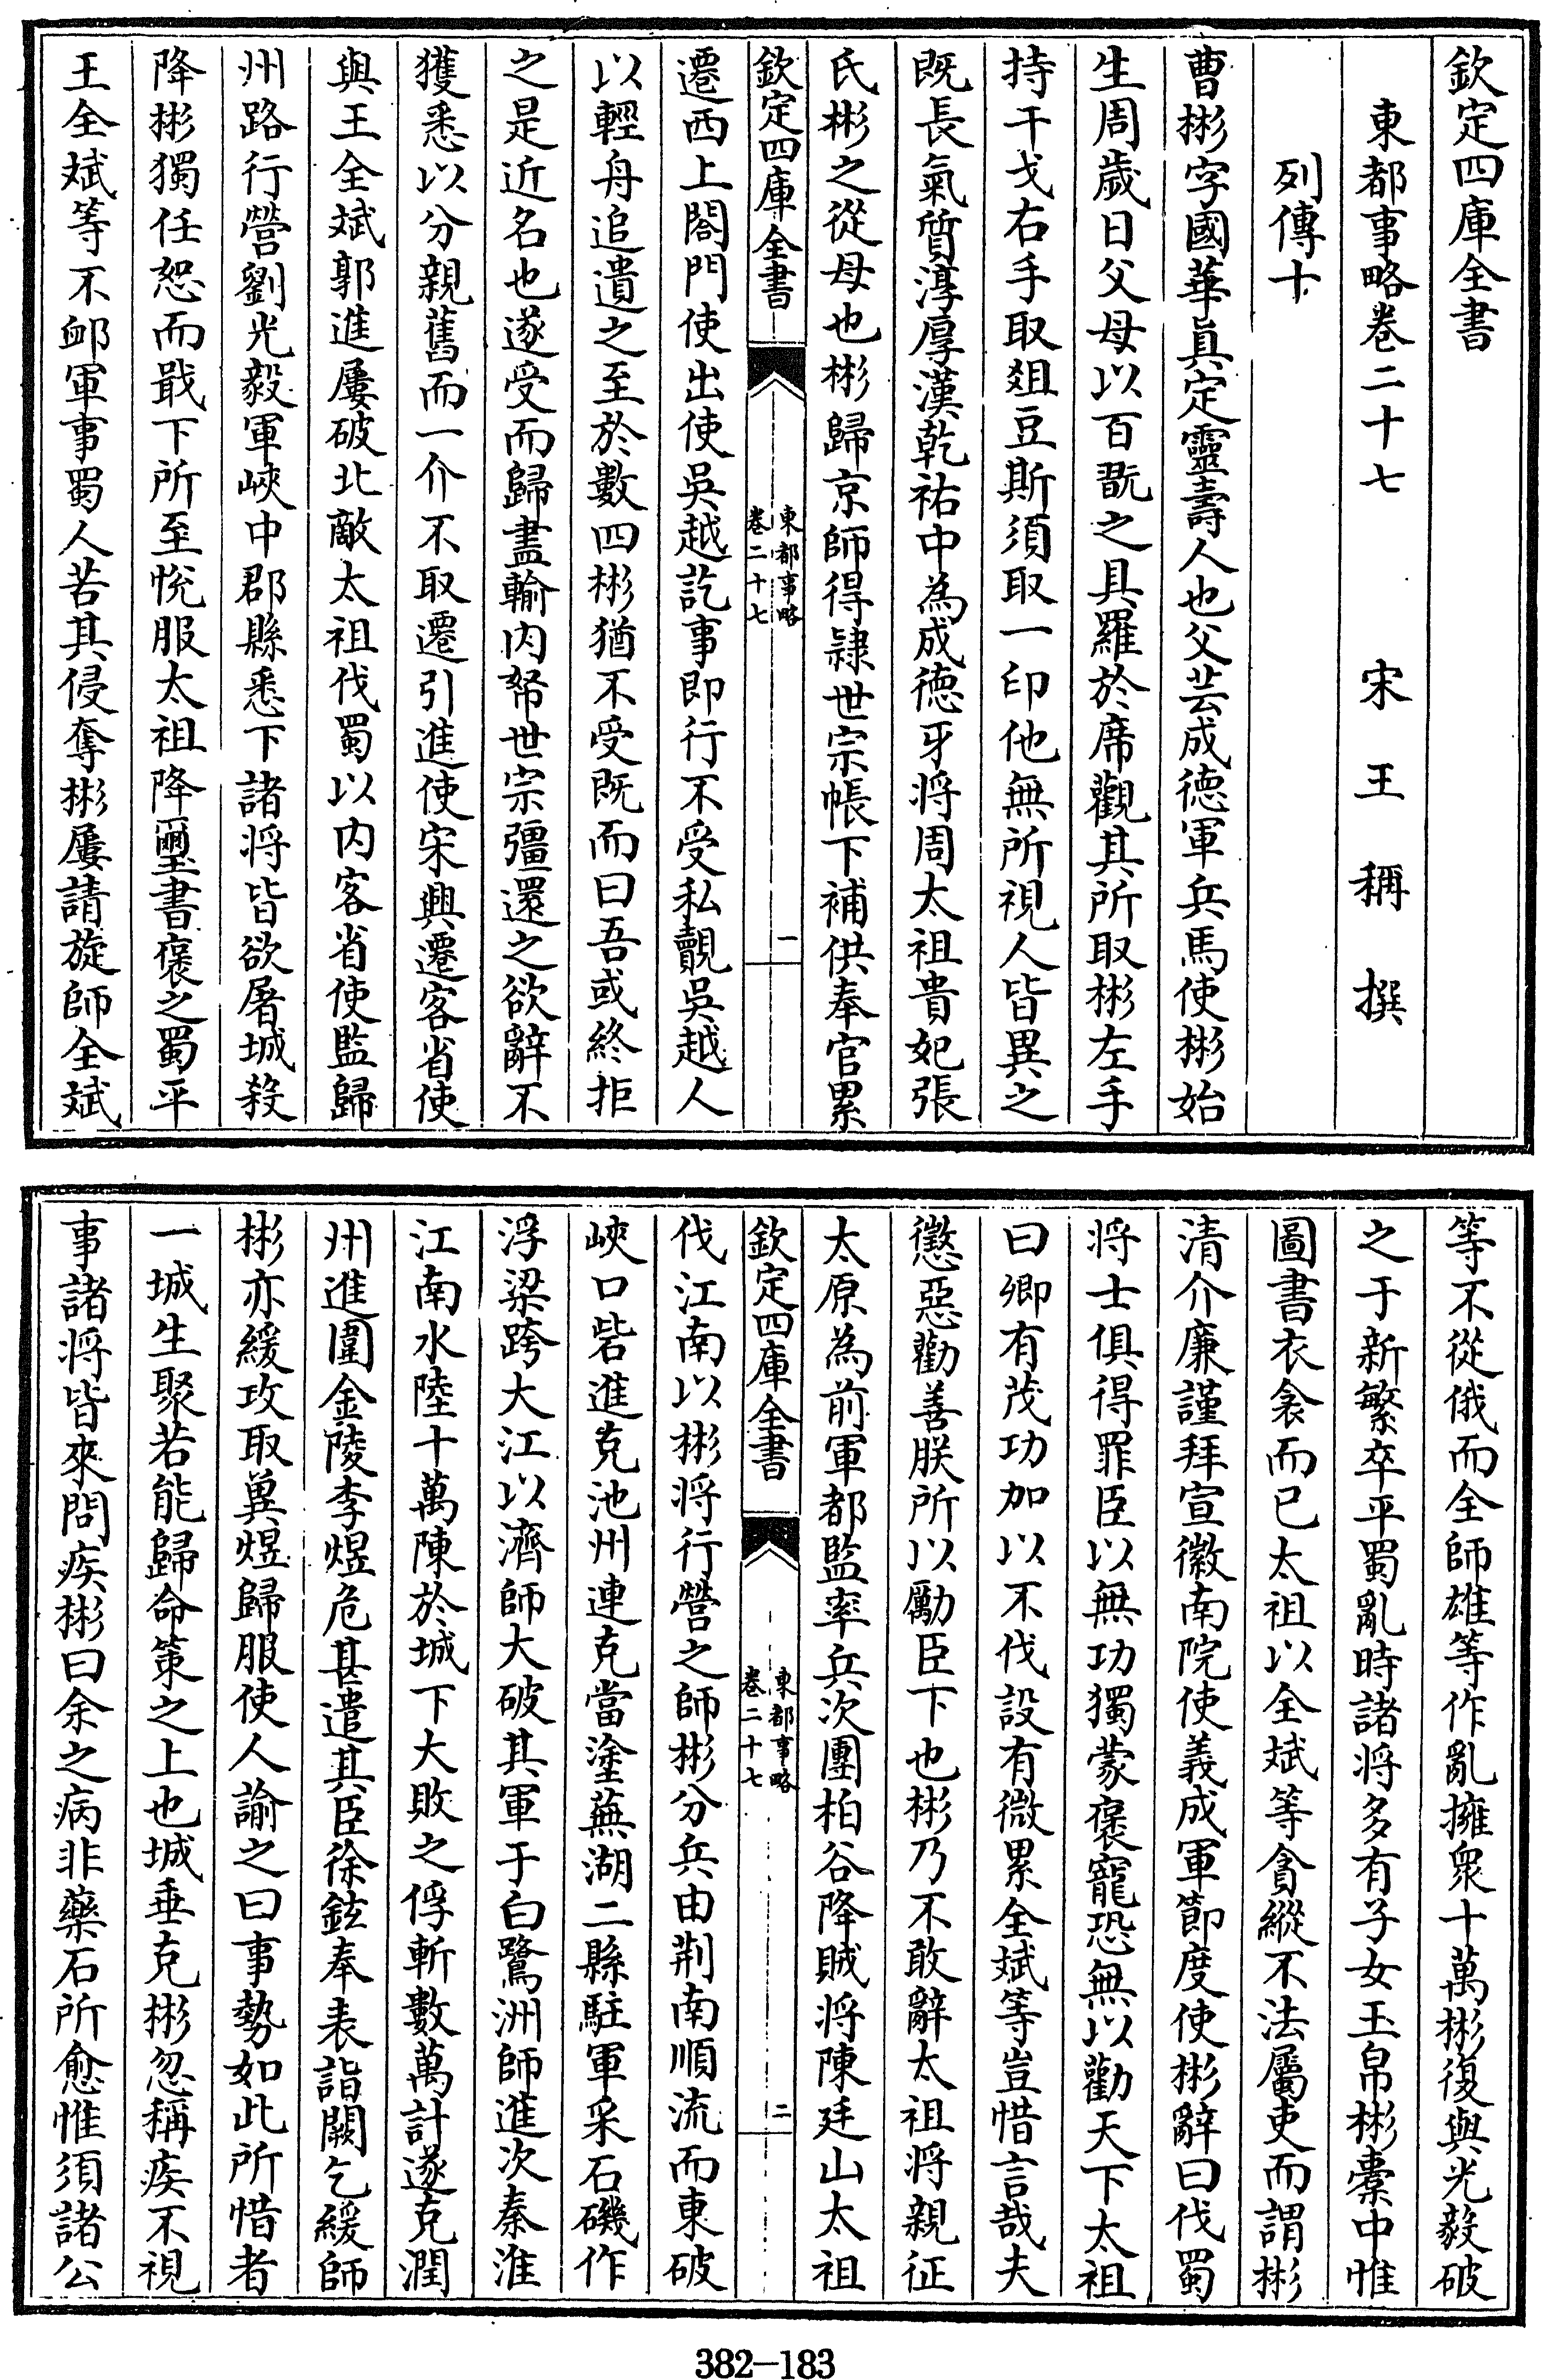 欽定四庫全書
東都事略卷二十七　宋　王　稱　撰
列傳十
曹彬字國華真定靈壽人也父芸成德軍兵馬使彬始
生周歲日父母以百翫之具羅於席觀其所取彬左手
持干戈右手取俎豆斯須取一印他無所視人皆異之
既長氣質淳厚漢乾祐中為成德牙将周太祖貴妃張
氏彬之從母也彬歸京師得隷世宗帳下補供奉官累
欽定四庫全書
東都事略
卷二十七
一
遷西上閤門使出使吳越訖事即行不受私覿吳越人
以輕舟追遺之至於數四彬猶不受既而曰吾或終拒
之是近名也遂受而歸盡輸内帑世宗彊還之欲辭不
獲悉以分親舊而一介不取遷引進使宋興遷客省使
與王全斌郭進屢破北敵太祖伐蜀以内客省使監歸
州路行營劉光毅軍峽中郡縣悉下諸将皆欲屠城殺
降彬獨任恕而戢下所至悦服太祖降璽書褒之蜀平
王全斌等不衈軍事蜀人苦其侵奪彬屢請旋師全斌
等不從俄而全師雄等作亂擁衆十萬彬復與光毅破
之于新繁卒平蜀亂時諸将多有子女玉帛彬橐中惟
圖書衣衾而已太祖以全斌等貪縱不法屬吏而謂彬
清介廉謹拜宣徽南院使義成軍節度使彬辭曰伐蜀
将士俱得罪臣以無功獨蒙褒寵恐無以勸天下太祖
曰卿有茂功加以不伐設有微累全斌等豈惜言哉夫
懲惡勸善朕所以勵臣下也彬乃不敢辭太祖将親征
太原為前軍都監率兵次團柏谷降賊将陳廷山太祖
欽定四庫全書
東都事略
卷二十七
二
伐江南以彬将行營之師彬分兵由荆南順流而東破
峽口砦進克池州連克當塗蕪湖二縣駐軍采石磯作
浮梁跨大江以濟師大破其軍于白鷺洲師進次秦淮
江南水陸十萬陳於城下大敗之俘斬數萬計遂克潤
州進圍金陵李煜危甚遣其臣徐鉉奉表詣闕乞緩師
彬亦緩攻取兾煜歸服使人諭之曰事勢如此所惜者
一城生聚若能歸命策之上也城垂克彬忽稱疾不視
事諸将皆來問疾彬曰余之病非藥石所愈惟須諸公
382-183